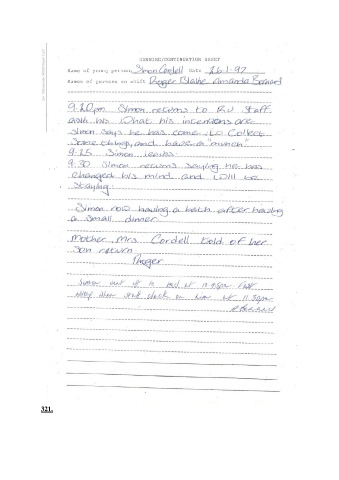 RUNNING/CONTINUATION SHEET
Name of young person Simon Cordell Date 26.1.97
Names of persons on shift Roger Blaike Amanda Bernard
9.20pm Simon returns to RU Staff
ask his What his intentions are
Simon says he has come to collect
some things, and have a "munch"
9.25 Simon leaves
9.30 Simon returns saying he has
changed his mind and will be
staying.
Simon now having a bath after having
a small dinner
Mother Mrs Cordell told of her
son return
Roger
Simon in at 11.45pm
on at 11.50pm
321.